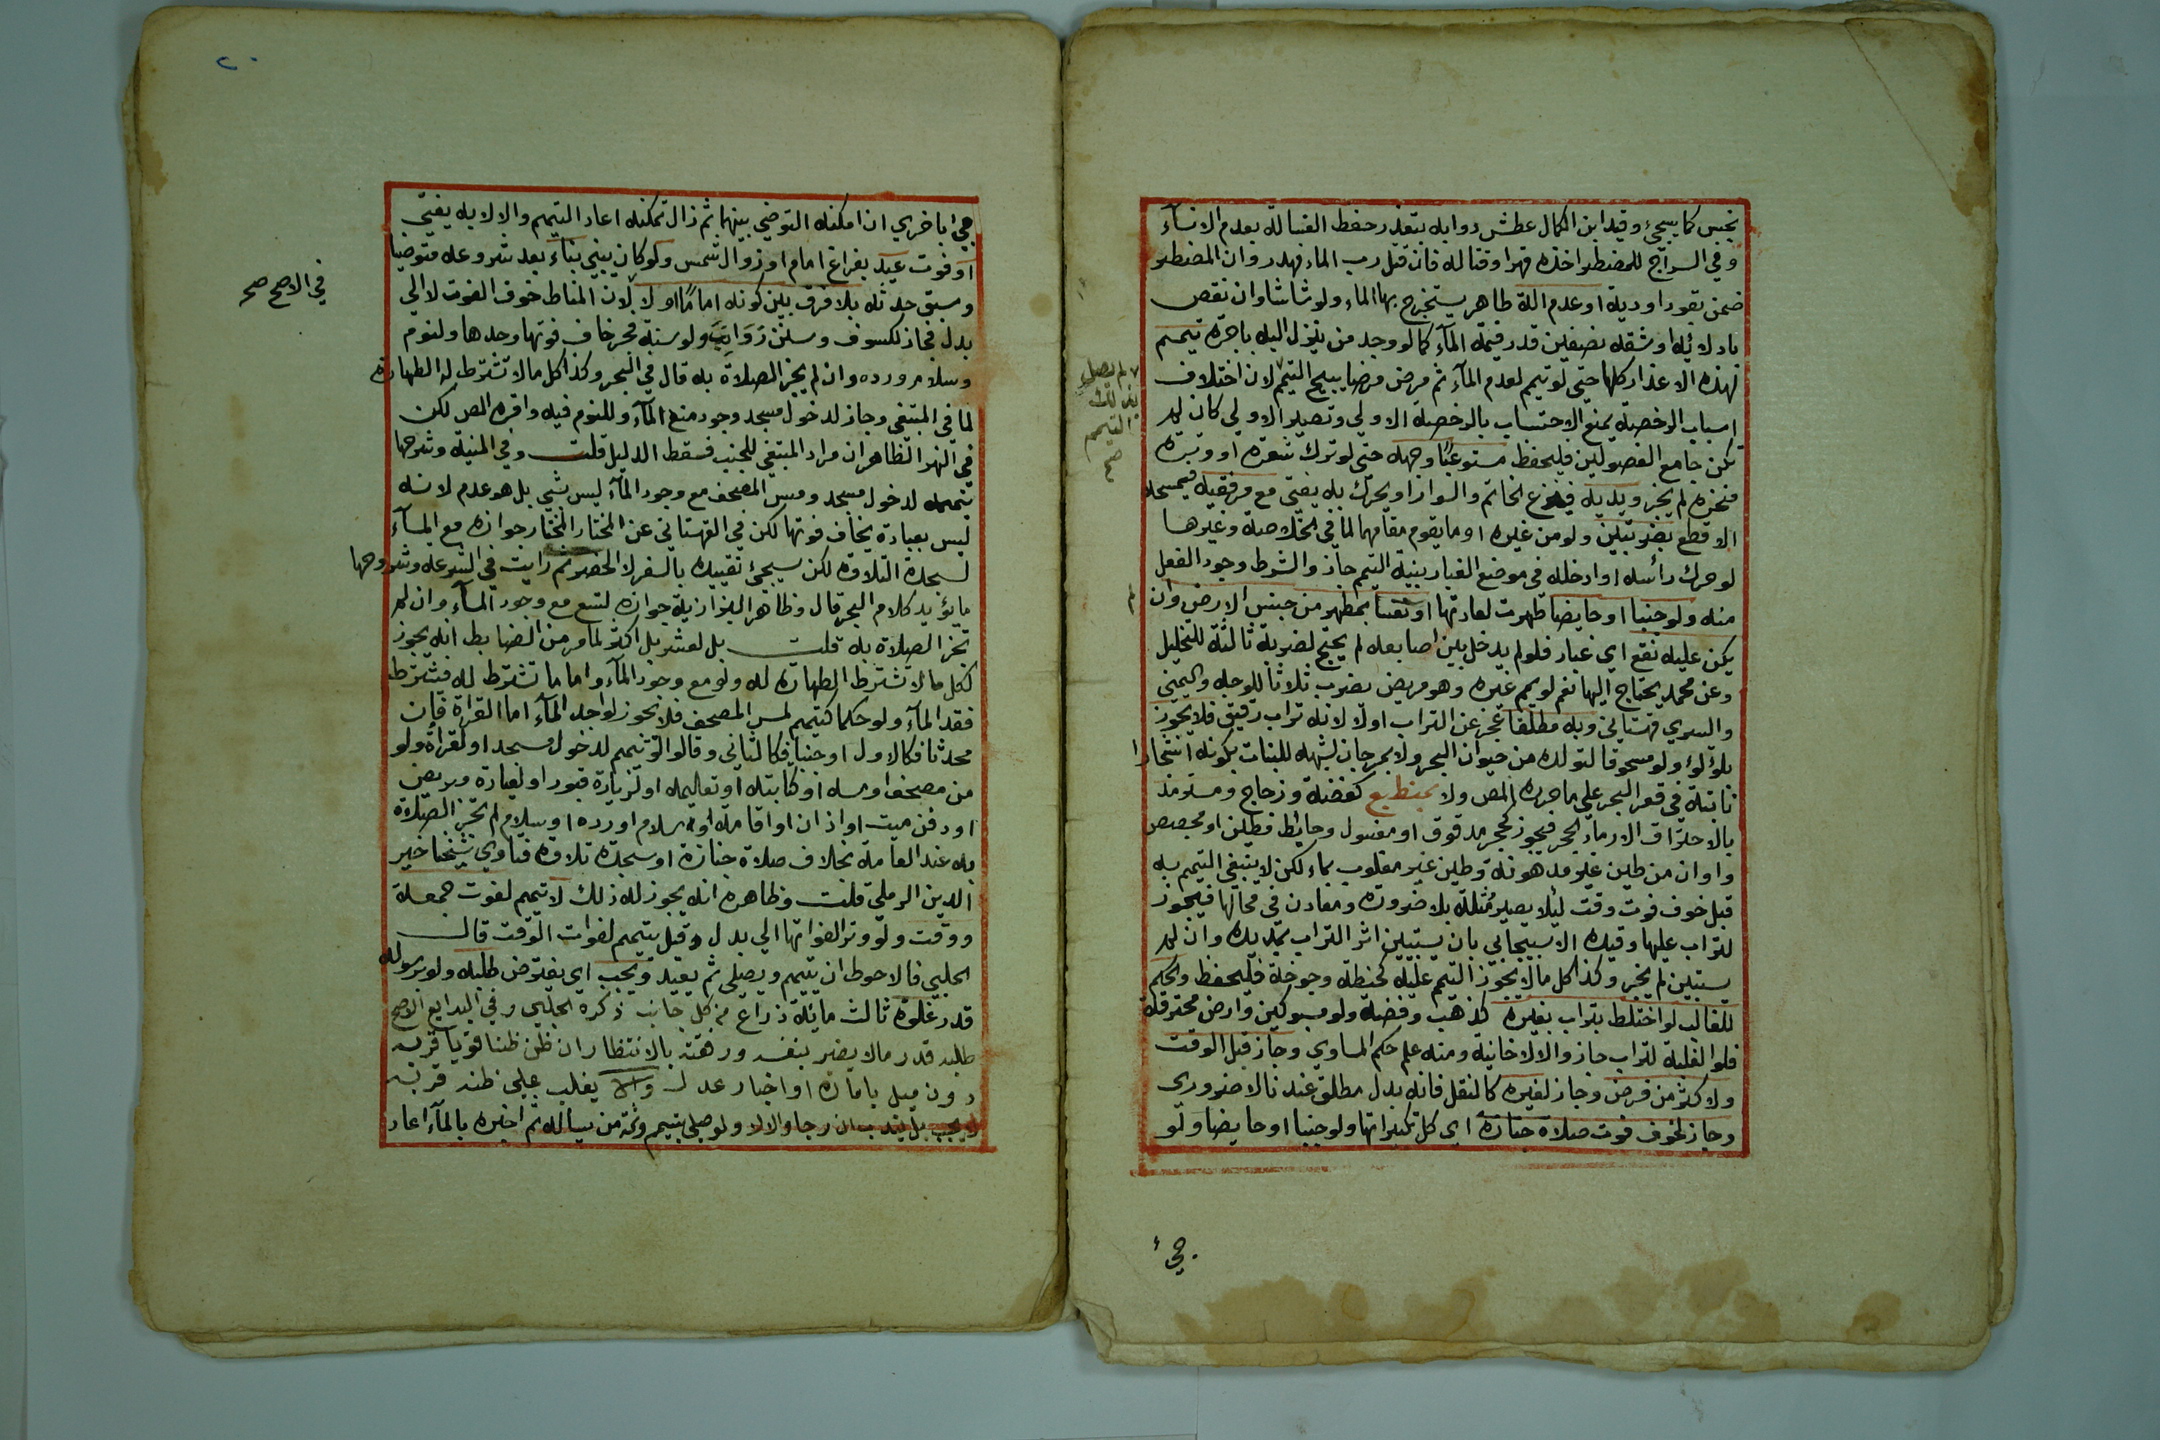 نجس كما سيجئ وقيد ابن الكمال عطش دوابه بتعذر حفظ الغسالة بعدم الاناء
وفي السراج للمضطر اخذه قهرا وقتاله فان قتل رب الماء فهدر وان المضطر
ضمن بقود او دية او عدم الة طاهر يستخرج بها الماء ولو شاشا وان نقص
بادلائه او شقه نصفين قدر قيمة المآء كما لو وجد من ينزل اليه باجره تيمم
لهذه الاعذار كلها حتى لو تيمم لعدم المآء ثم مرض مرضا يبيح التيمم لان اختلاف
اسباب الرخصة يمنع الاحتساب بالرخصة الاولي وتصير الاولي كان لم
تكن جامع الفصولين فليحفظ مستوعبًا وجهه حتى لو ترك شعره او وترة
منخره لم يجز ويديه فينزع الخاتم والسوار او يحرك به يفتى مع مرفقيه فيمسحه
الاقطع بضربتين ولو من غيره او ما يقوم مقامهما لما في الخلاصة وغيرها
لو حرك رأسه او ادخله في موضع الغبار بنية التيمم جاز والشرط وجود الفعل
منه ولو جنبا او حايضا طهرت لعادتها او نفسا بمطهر من جنس الارض وان لم
يكن عليه نقع اي غبار فلو لم يدخل بين اصابعه لم يحتج لضربة ثالثة للتخليل
وعن محمد يحتاج اليها نعم لو يمم غيره وهو مريض يضرب ثلاثا للوجه واليمنى
واليسرى قهستاني وبه مطلقا عجز عن التراب اولا لانه تراب رقيق فلا يجوز
بلؤلؤ ولو مسحوقا لتولده من حيوان البحر ولا بمرجان لشبهه للنبات بكونه اشجارا
نابتة في قعر البحر على ما حرره المص ولا بمنطبع كفضة وزجاج ومترمد
بالاحتراق الا رماد الحجر فيجوز كحجر مدقوق او مغسول وحايط مطين او مجصص
واوان من طين غير مدهونة وطين غير مغلوب بماء لكن لا ينبغي التيمم به
قبل خوف فوت وقت ليلا يصير مثلة بلا ضرورة ومعادن في محالها فيجوز
لتراب عليها وقيده الاسبيجابي بان يستبين اثر التراب بمد يده وان لم
يستبين لم يجز وكذا كل ما لا يجوز التيمم عليه كحنطة وجوخة فليحفظ والحكم
للغالب لو اختلط بتراب بغيره كذهب وفضة ولو مسبوكين وارض محترقة
فلو الغلبة لتراب جاز والا لا خانية ومنه علم حكم المساوي وجاز قبل الوقت
ولاكثر من فرض وجاز لغيره كالنفل فانه بدل مطلق عندنا لا ضروري
وجاز لخوف فوت صلاة جنازة اي كل تكبيراتها ولو جنبا او حايضا ولو
لم يصل
بذلك
التيمم
صح
جئ
٢٠
جئ باخري ان امكنه التوضي بينهما ثم زال تمكنه اعاد التيمم والا لا به يفتى
او فوت عيد بفراغ امام او زوال شمس ولو كان يبني بناء بعد شروعه متوضيا
وسبق حدثه بلا فرق بين كونه امامًا او لا لان المناط خوف الفوت لا الي
بدل فجاز لكسوف وسنن رواتب ولو سنة فجر خاف فوتها وحدها ولنوم
وسلام ورده وان لم يجز الصلاة به قال في البحر وكذا كل ما لا تشترط له الطهارة
لما في المبتغى وجاز لدخول مسجد وجود منع المآء وللنوم فيه واقره المص لكن
في النهر الظاهر ان مراد المبتغي للجنب فسقط الدليل قلت وفي المنية وشرحها
تيممه لدخول مسجد ومس المصحف مع وجود المآء ليس بشي بل هو عدم لانه
ليس بعبادة يخاف فوتها لكن في القهستاني عن المختار المختار جوازه مع المآء
لسجدة التلاوة لكن سيجئ تقييده بالسفر لا الحضر ثم رايت في الشرعه وشروحها
ما يؤيد كلام البحر قال وظاهر البزازية جوازه لتسع مع وجود المآء وان لم
تجز الصلاة به قلت بل لعشر بل اكثر لما مر من الضابط انه يجوز
لكل ما لا تشترط الطهارة له ولو مع وجود المآء واما ما تشترط له فيشترط
فقد المآء ولو حكما كتيمم لمس المصحف فلا يجوز لواجد المآء اما القراة فان
محدثا فكالاول او جنبا فكالثاني وقالوا لو تيمم لدخول مسجد او لقراة ولو
من مصحف او مسه او كتابته او تعاليمه او لزيارة قبور او لعيادة مريض
او دفن ميت او اذان او اقامة او سلام او رده او سلام لم تجز الصلاة
به عند العامة بخلاف صلاة جنازة او سجدة تلاوة فتاوي شيخنا خير
الدين الرملي قلت وظاهره انه يجوز له ذلك لا تيمم لفوت جمعة
ووقت ولو وترا لفواتها الي بدل وقيل يتيمم لفوات الوقت قال
الحلبي فالاحوط ان يتيمم ويصلي ثم يعيد ويجب اي يفترض طلبه ولو برسوله
قدر غلوة ثلاث ماية ذراع من كل جانب ذكره الحلبي وفي البدايع الاصح
طلبه قدر ما لا يضر بنفسه ورفقته بالانتظار ان ظن ظنا قويا قربه
دون ميل بامارة او اخبار عدل والا يغلب على ظنه قربه
لا يجب بل يندب ان رجا والا لا ولو صلى بتيمم وثمة من يسأله ثم اخبره بالمآء اعاد
في الاصح صح